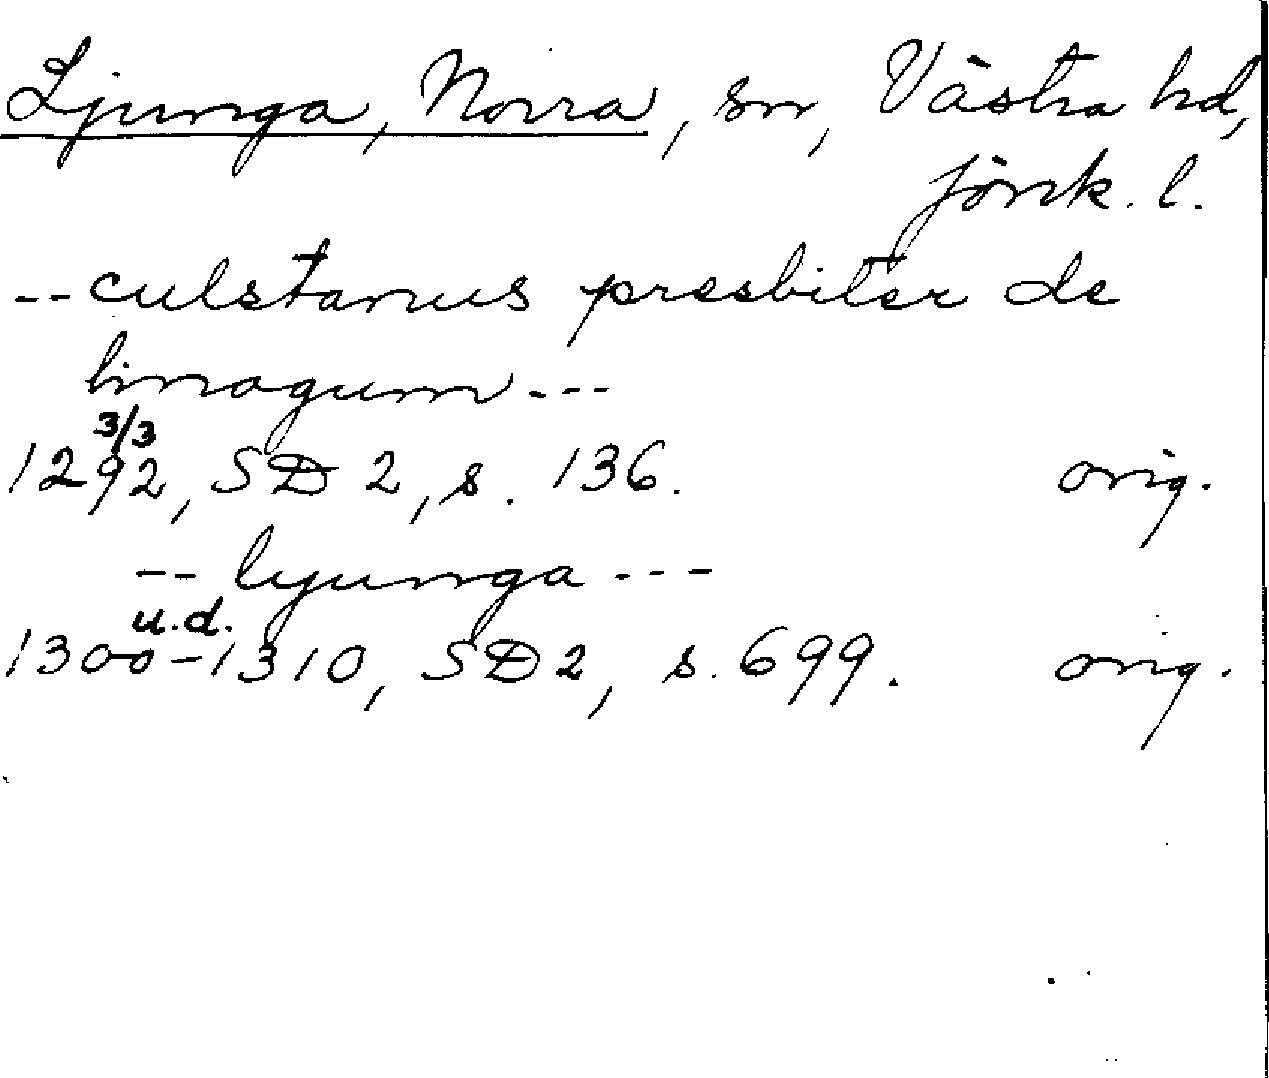 Ljunga, Norra, sn, Västra hd,
Jönk. l.
-- culstanus presbiter de
linagum ---
3/3
1292, SD 2, s. 136. orig.
-- lyunga ---
u.d.
1300-1310, SD 2, s. 699. orig.